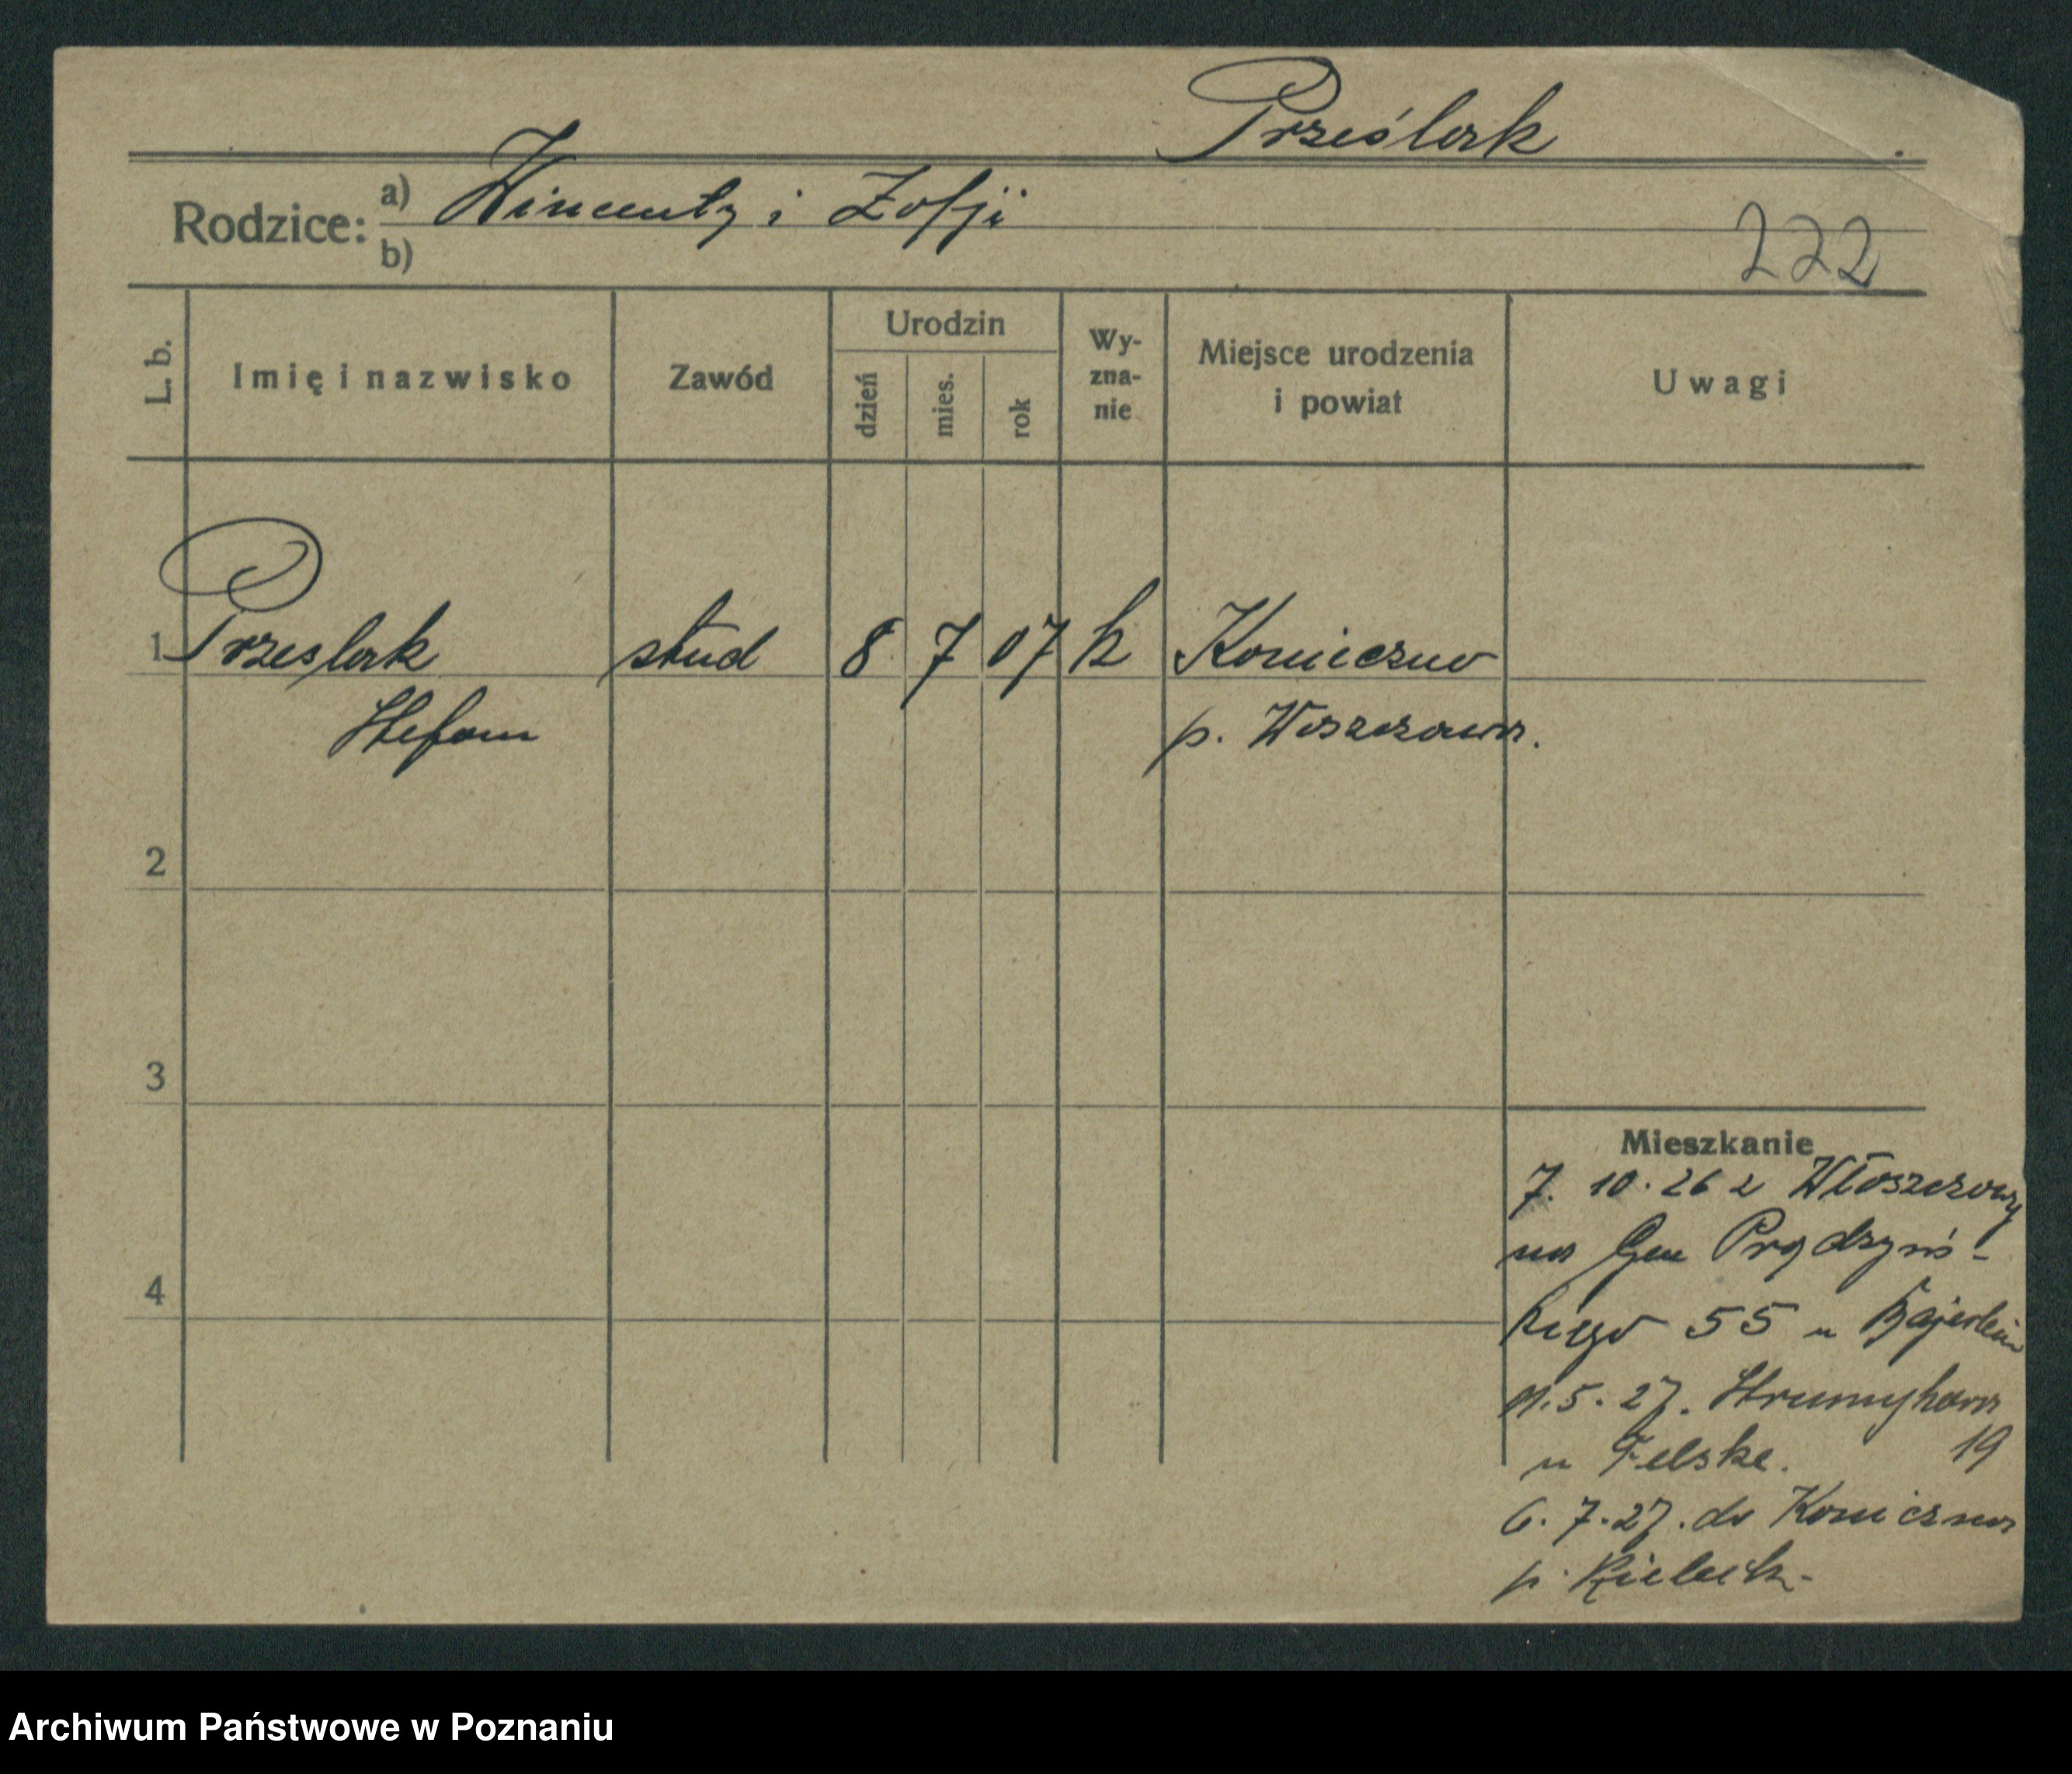 Prześlak
Rodzice: a) Wincenty i Zofji
b)
222
L. b.
Imię i nazwisko
Zawód
Urodzin
dzień
mies.
rok
Wy-
zna-
nie
Miejsce urodzenia
i powiat
Uwagi
1 Przeslak stud 8 7 07 k Konieczno
Stefan p. Woszczowa.
2
3
4
Mieszkanie
7. 10. 26 z Włoszczowy
na Gen Prądzyńs-
kiego 55 u Bajerlein
5. 27. Strumykowa
u Felske. 19
6. 7. 27. do Konieczna
p. Kieleck.
Archiwum Państwowe w Poznaniu